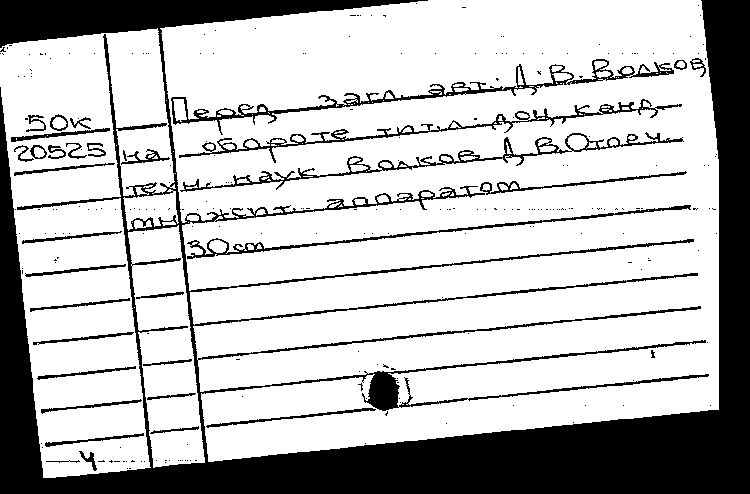 Перед загл. авт: Д.В. Волков,
50к
на обороте тит.л: доц, канд.
20525
техн. наук Волков Д.В. Отпеч.
множит. аппаратом
30 cm
4